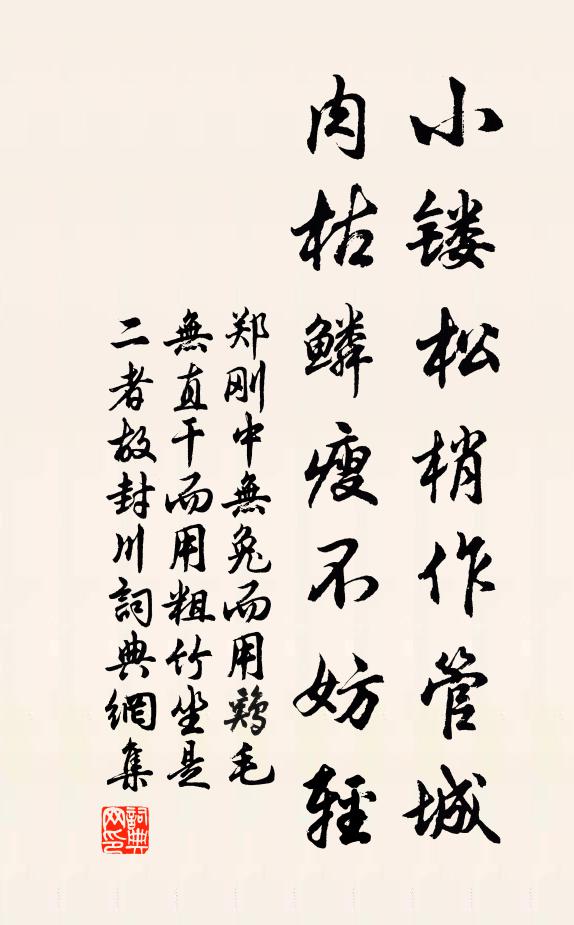 小镂松梢作管城
肉枯鳞瘦不妨輕
郑刚中無兔而用鷄毛
無直干而用粗竹坐是
二者故封川詞典網集
詞典網印